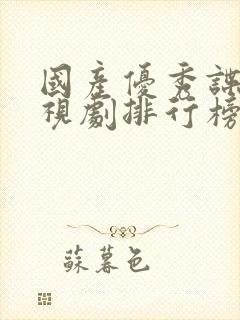 國産優秀諜
視劇排行榜
蘇暮色